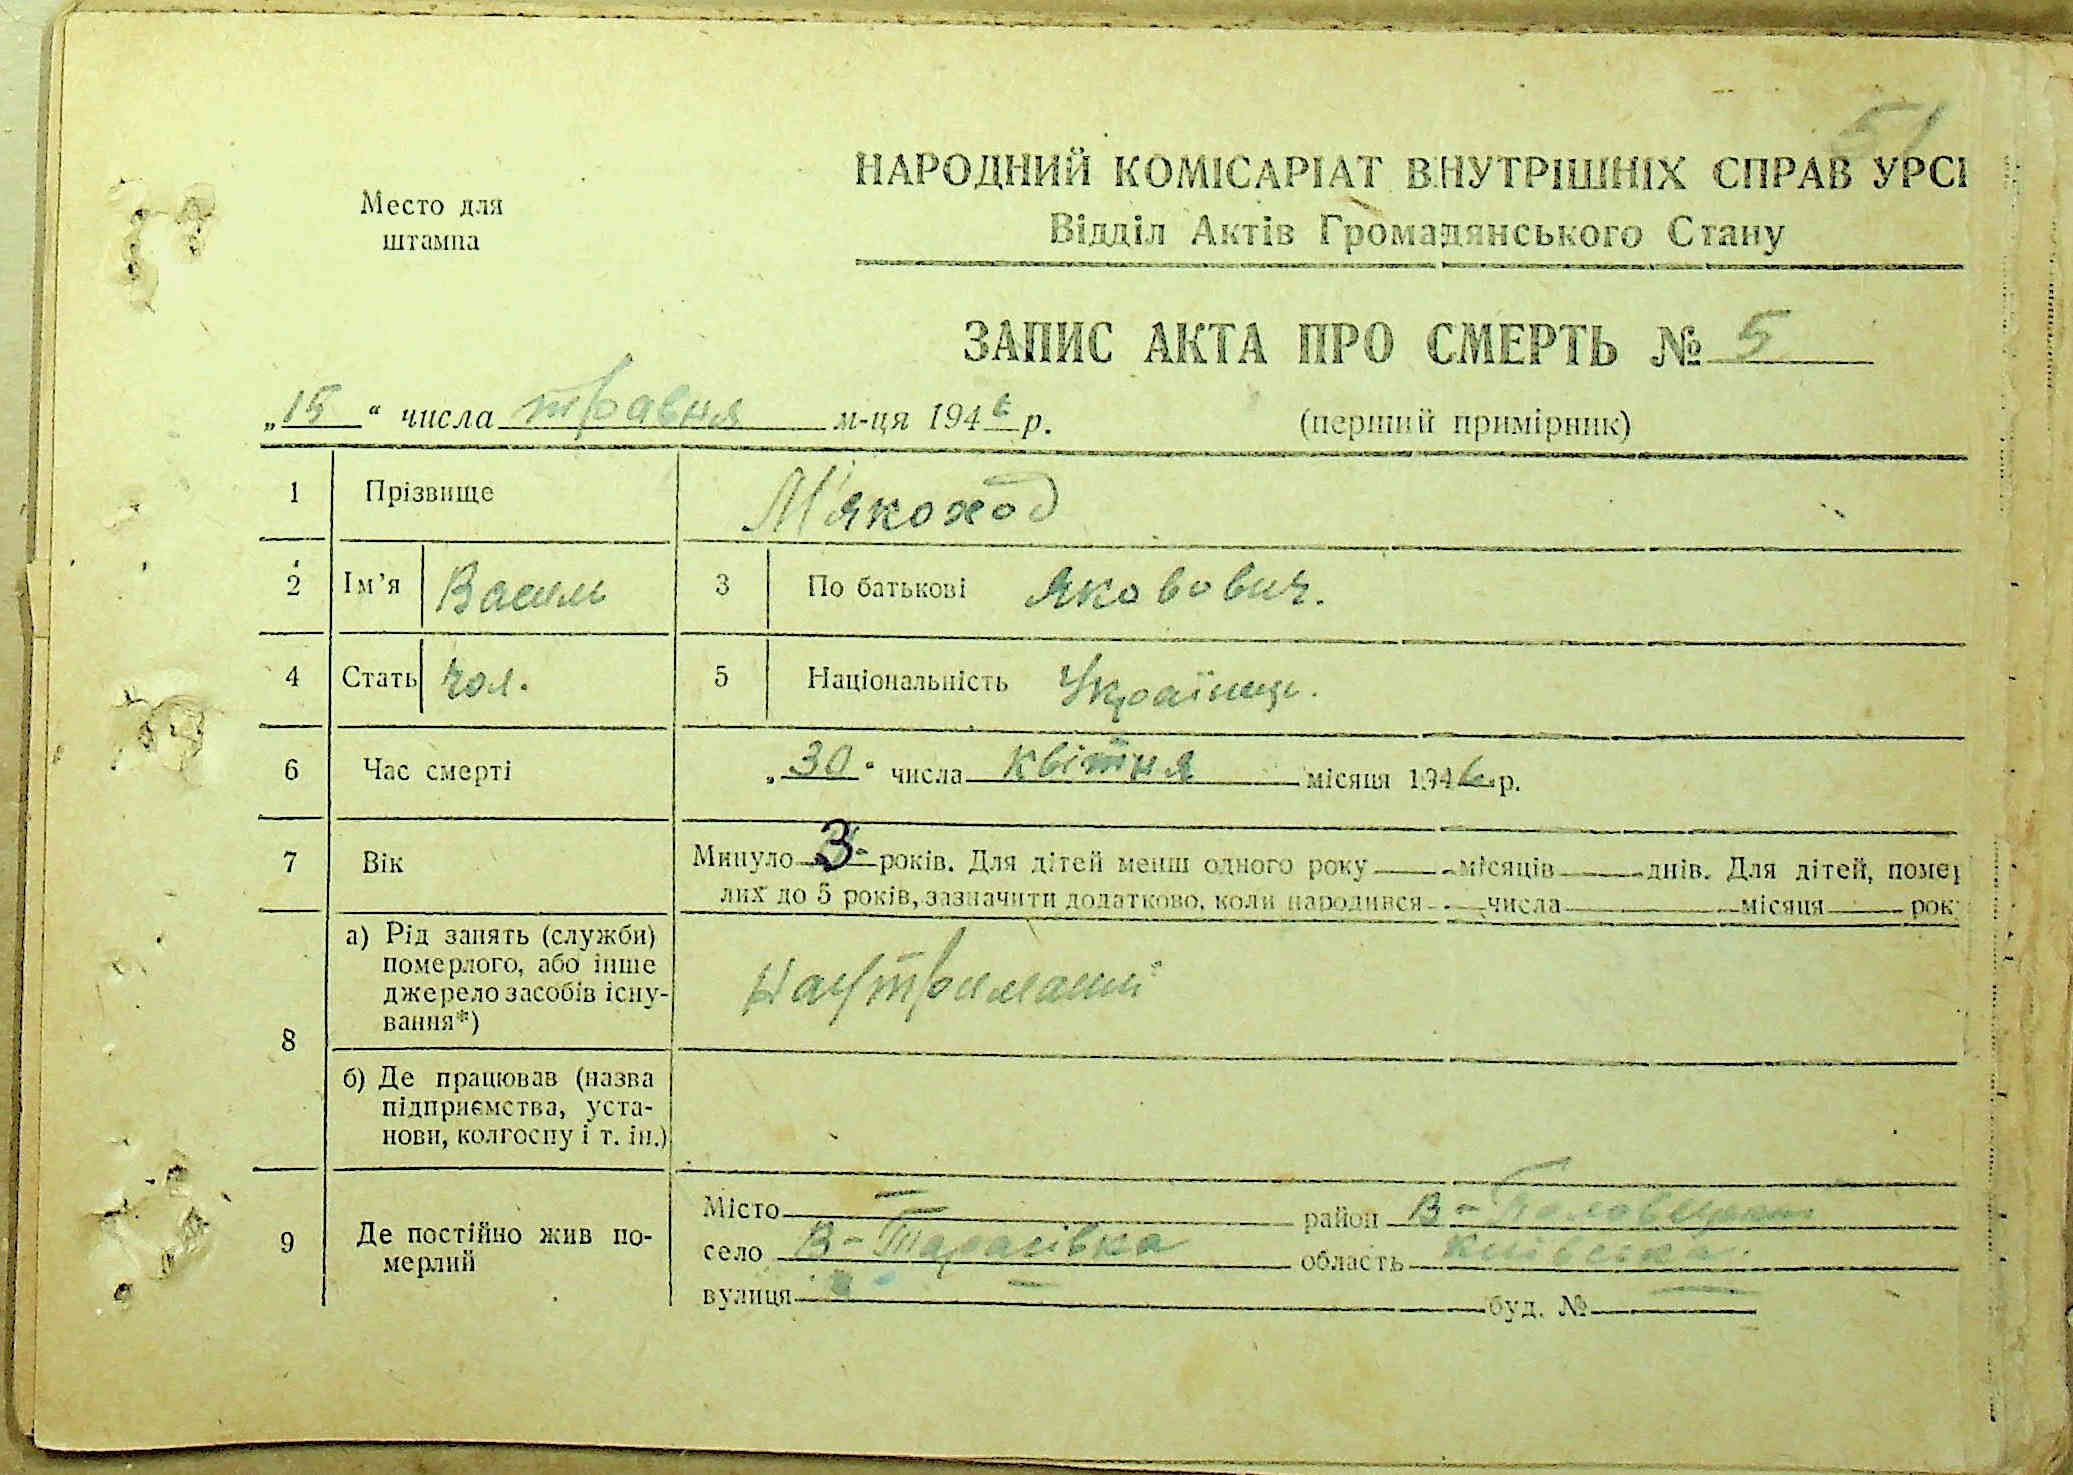 51
Место для
штампа
НАРОДНИЙ КОМІСАРІАТ ВНУТРІШНІХ СПРАВ УРСІ
Відділ Актів Громадянського Стану
ЗАПИС АКТА ПРО СМЕРТЬ № 5
„15“ числа травня м-ця 1946 р.
(перший примірник)
1 Прізвище М'якоход
2 Ім'я Василь 3 По батькові Якович.
4 Стать чол. 5 Національність Українець.
6 Час смерті „30“ числа квітня місяця 1946 р.
7 Вік Минуло 3 років. Для дітей менш одного року місяців днів. Для дітей, помер
лих до 5 років, зазначити додатково, коли народився числа місяця рок
8 а) Рід занять (служби)
померлого, або інше
джерело засобів існу-
вання*)
На утриманні
б) Де працював (назва
підприємства, уста-
нови, колгоспу і т. ін.)
9 Де постійно жив по-
мерлий
Місто район В-Половецький
село В-Тарасівка область Київська.
вулиця буд. №